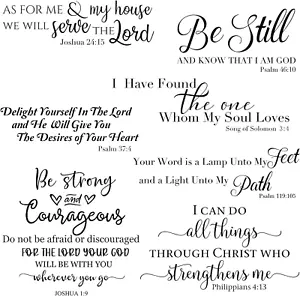 AS FOR ME & my house
WE WILL serve THE Lord
Joshua 24:15
Be Still
AND KNOW THAT I AM GOD
Psalm 46:10
I Have Found
the one
Whom My Soul Loves
Song of Solomon 3:4
Delight Yourself In The Lord
and He Will Give You
The Desires of Your Heart
Psalm 37:4
Your Word is a Lamp Unto My Feet
and a Light Unto My Path
Psalm 119:105
Be strong
and
Courageous
Do not be afraid or discouraged
FOR THE LORD YOUR GOD
WILL BE WITH YOU
wherever you go
JOSHUA 1:9
I CAN DO
all things
THROUGH CHRIST WHO
strengthens me
Philippians 4:13